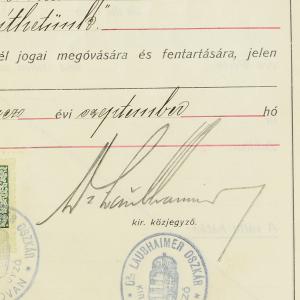 íthetünk."
él jogai megóvására és fentartására, jelen
évi szeptember hó
Dr Laubhaimer
kir. közjegyző.
Dr LAUBHAIMER OSZKÁR
OSZKÁR